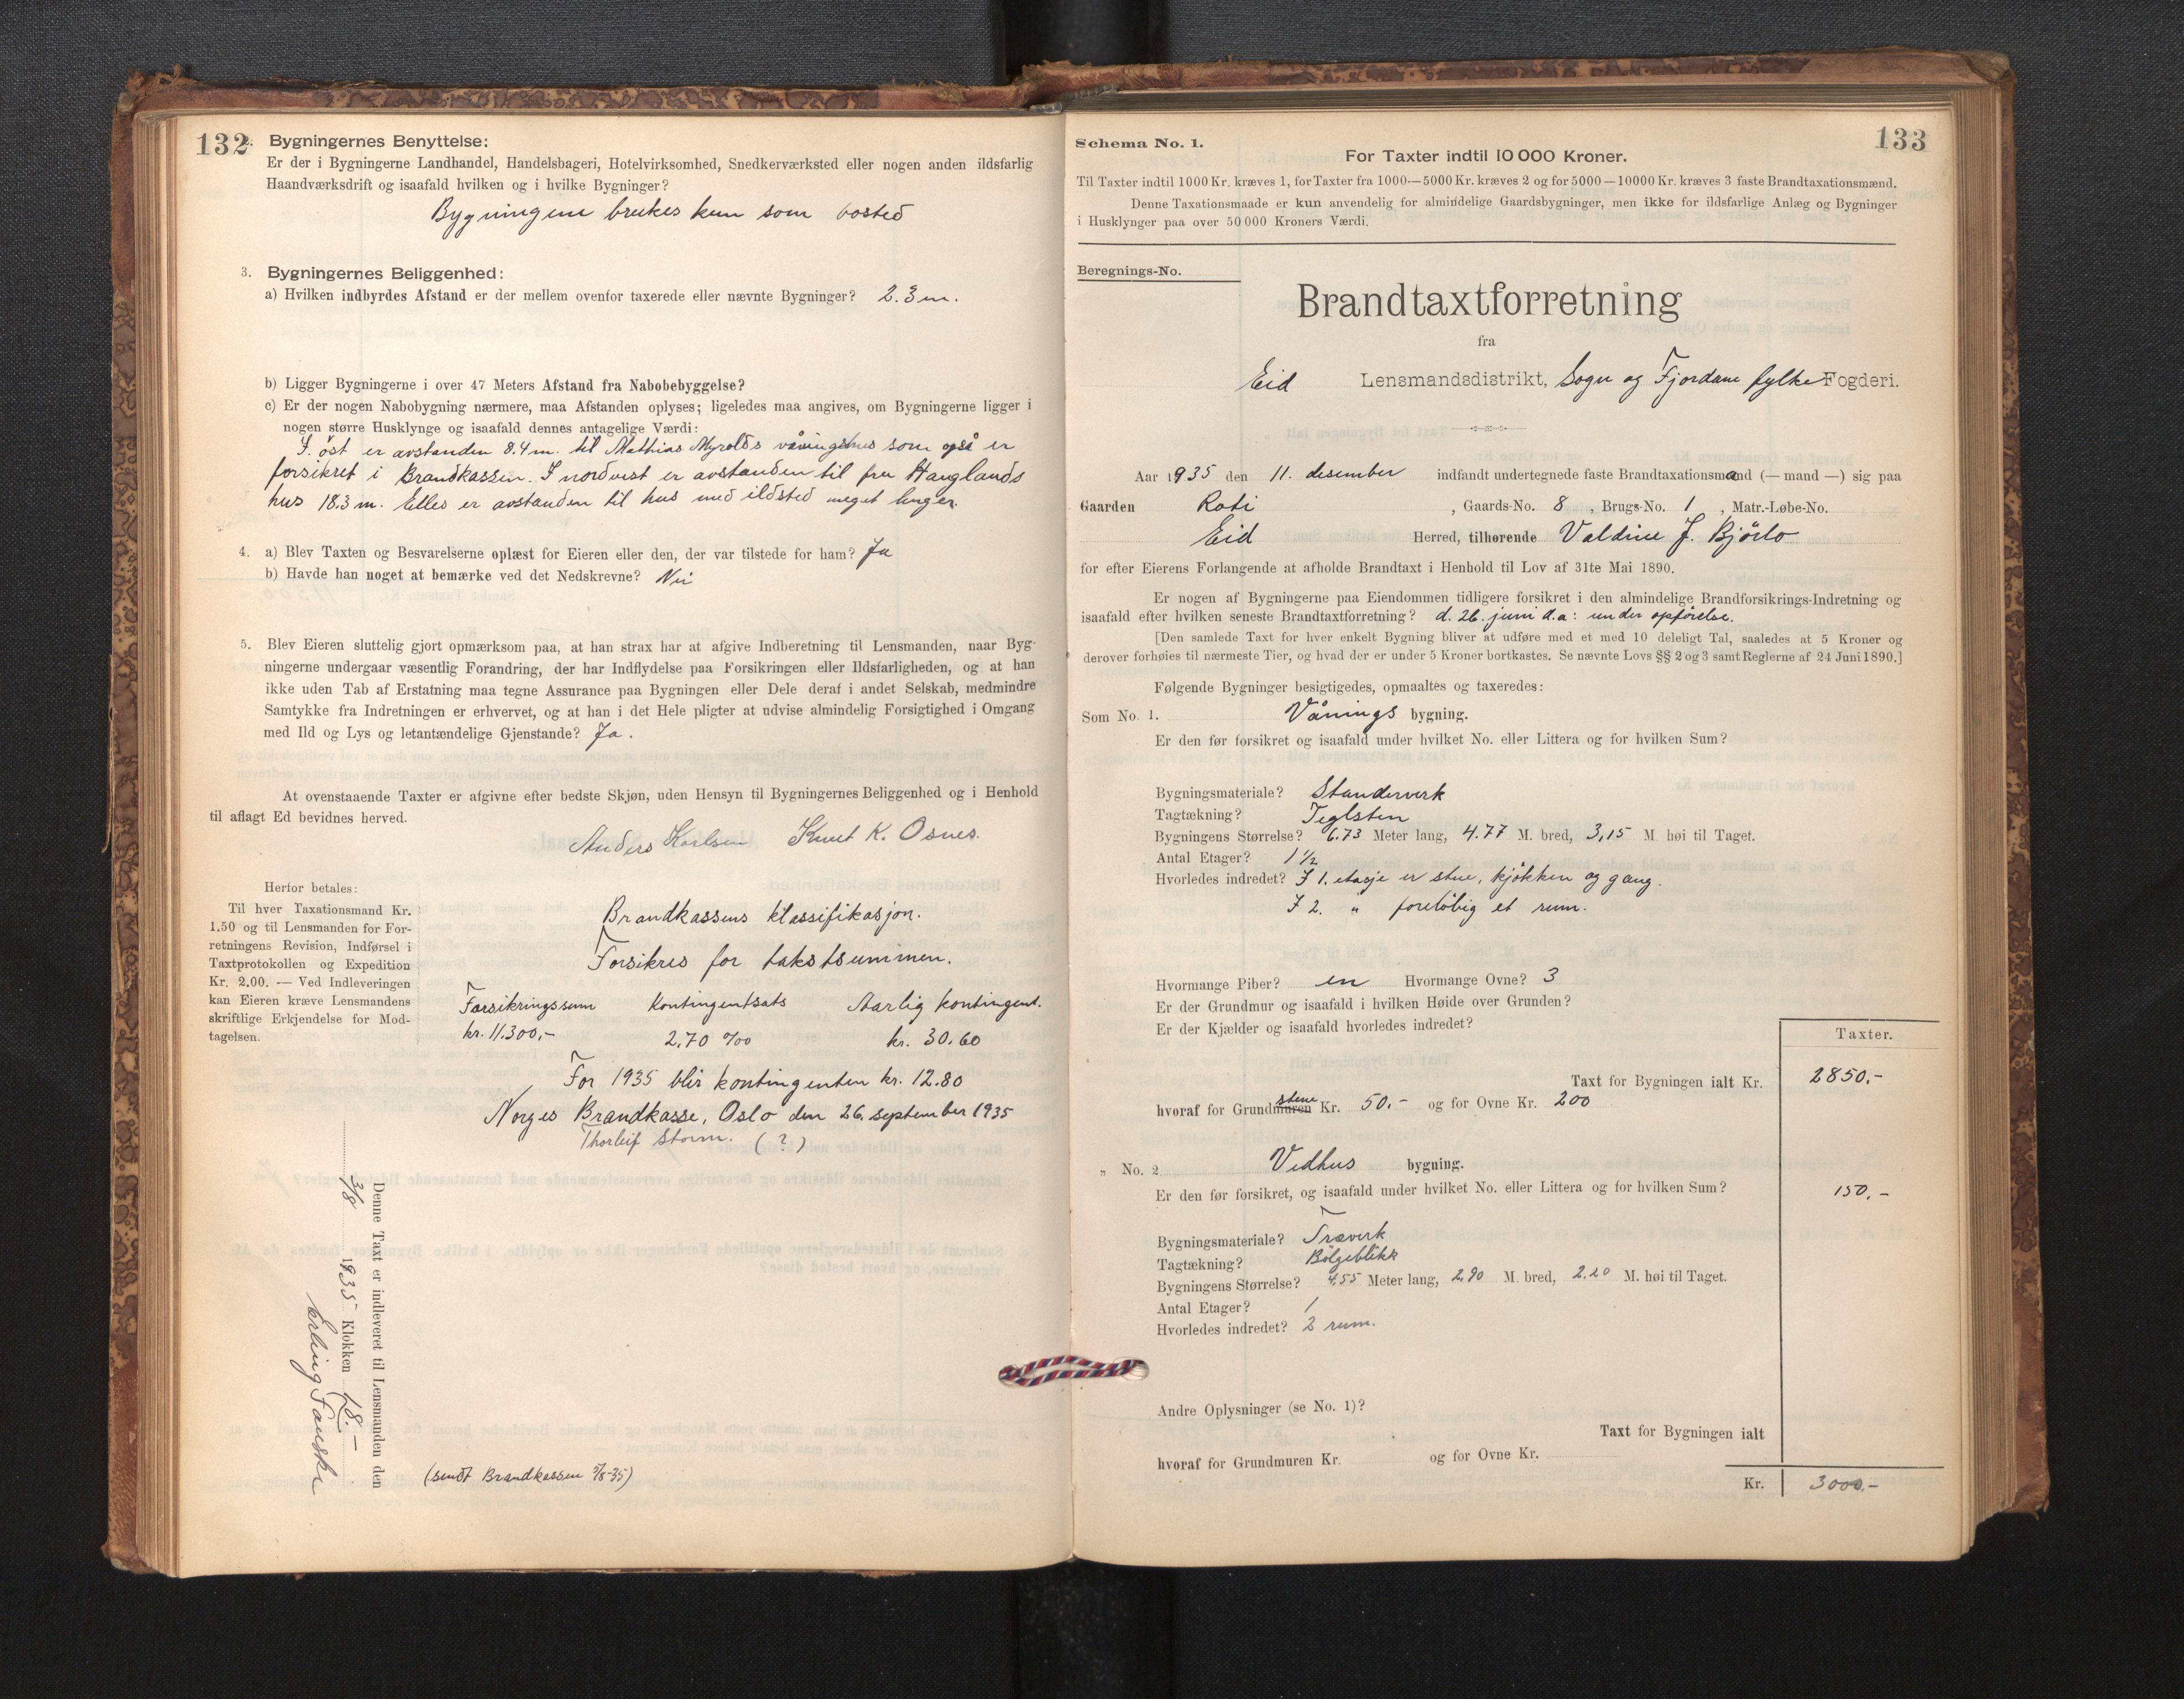 132
2. Bygningernes Benyttelse:
Er der i Bygningerne Landhandel, Handelsbageri, Hotelvirksomhed, Snedkerværksted eller nogen anden ildsfarlig
Haandværksdrift og isaafald hvilken og i hvilke Bygninger?
Bygningene brukes kun som bosted
3. Bygningernes Beliggenhed:
a) Hvilken indbyrdes Afstand er der mellem ovenfor taxerede eller nævnte Bygninger? 2.3 m.
b) Ligger Bygningerne i over 47 Meters Afstand fra Nabobebyggelse?
c) Er der nogen Nabobygning nærmere, maa Afstanden oplyses; ligeledes maa angives, om Bygningerne ligger i
nogen større Husklynge og isaafald dennes antagelige Værdi:
I öst er avstanden 8.4 m. til Mathias Myrolds våningshus som også er
forsikret i Brandkassen. I nordvest er avstanden til fru Hauglands
hus 18.3 m. Elles er avstanden til hus med ildsted meget lenger.
4. a) Blev Taxten og Besvarelserne oplæst for Eieren eller den, der var tilstede for ham? Ja
b) Havde han noget at bemærke ved det Nedskrevne? Nei
5. Blev Eieren sluttelig gjort opmærksom paa, at han strax har at afgive Indberetning til Lensmanden, naar Byg-
ningerne undergaar væsentlig Forandring, der har Indflydelse paa Forsikringen eller Ildsfarligheden, og at han
ikke uden Tab af Erstatning maa tegne Assurance paa Bygningen eller Dele deraf i andet Selskab, medmindre
Samtykke fra Indretningen er erhvervet, og at han i det Hele pligter at udvise almindelig Forsigtighed i Omgang
med Ild og Lys og letantændelige Gjenstande? Ja.
At ovenstaaende Taxter er afgivne efter bedste Skjøn, uden Hensyn til Bygningernes Beliggenhed og i Henhold
til aflagt Ed bevidnes herved.
Anders Karlsen Knut K. Osnes.
Herfor betales:
Til hver Taxationsmand Kr.
1.50 og til Lensmanden for For-
retningens Revision, Indførsel i
Taxtprotokollen og Expedition
Kr. 2.00. — Ved Indleveringen
kan Eieren kræve Lensmandens
skriftlige Erkjendelse for Mod-
tagelsen.
Brandkassens klassifikasjon.
Forsikres for takstsummen.
Forsikringssum Kontingentsats Aarlig kontingent.
kr. 11.300,- 2,70 ‰ kr. 30.60
For 1935 blir kontingenten kr. 12.80
Norges Brandkasse, Oslo den 26. september 1935
Thorleif Storm. (?)
Denne Taxt er indleveret til Lensmanden den
3/8 1935 Klokken 18.-
Erling Fauske
(sendt Brandkassen 5/8-35)
133
Schema No. 1.
For Taxter indtil 10 000 Kroner.
Til Taxter indtil 1000 Kr. kræves 1, for Taxter fra 1000—5000 Kr. kræves 2 og for 5000—10000 Kr. kræves 3 faste Brandtaxationsmænd.
Denne Taxationsmaade er kun anvendelig for almindelige Gaardsbygninger, men ikke for ildsfarlige Anlæg og Bygninger
i Husklynger paa over 50 000 Kroners Værdi.
Beregnings-No.
Brandtaxtforretning
fra
Eid Lensmandsdistrikt, Sogn og Fjordane fylke Fogderi.
Aar 1935 den 11. desember indfandt undertegnede faste Brandtaxationsmand (— mand —) sig paa
Gaarden Roti, Gaards-No. 8, Brugs-No. 1, Matr.-Løbe-No.
Eid Herred, tilhørende Valdine J. Bjørlo
for efter Eierens Forlangende at afholde Brandtaxt i Henhold til Lov af 31te Mai 1890.
Er nogen af Bygningerne paa Eiendommen tidligere forsikret i den almindelige Brandforsikrings-Indretning og
isaafald efter hvilken seneste Brandtaxtforretning? d. 26. juni d.a: under opførelse.
[Den samlede Taxt for hver enkelt Bygning bliver at udføre med et med 10 deleligt Tal, saaledes at 5 Kroner og
derover forhøies til nærmeste Tier, og hvad der er under 5 Kroner bortkastes. Se nævnte Lovs §§ 2 og 3 samt Reglerne af 24 Juni 1890.]
Følgende Bygninger besigtigedes, opmaaltes og taxeredes:
Som No. 1. Vånings bygning.
Er den før forsikret og isaafald under hvilket No. eller Littera og for hvilken Sum?
Bygningsmateriale? Standerverk
Tagtækning? Teglsten
Bygningens Størrelse? 6.73 Meter lang, 4.77 M. bred, 3,15 M høi til Taget.
Antal Etager? 1 1/2
Hvorledes indredet? I 1. etasje er stue, kjøkken og gang.
I 2. " foreløbig et rum.
Hvormange Piber? en Hvormange Ovne? 3
Er der Grundmur og isaafald i hvilken Høide over Grunden?
Er der Kjælder og isaafald hvorledes indredet?
Taxter.
Taxt for Bygningen ialt Kr. 2850.-
hvoraf for Grundmuren stene Kr. 50.- og for Ovne Kr. 200
„ No. 2 Vedhus bygning.
Er den før forsikret, og isaafald under hvilket No. eller Littera og for hvilken Sum? 150,-
Bygningsmateriale? Træverk
Tagtækning? Bølgeblikk
Bygningens Størrelse? 4,55 Meter lang, 2,90 M. bred, 2,20 M. høi til Taget.
Antal Etager? 1
Hvorledes indredet? 2 rum.
Andre Oplysninger (se No. 1)?
Taxt for Bygningen ialt
hvoraf for Grundmuren Kr. og for Ovne Kr.
Kr. 3000,-